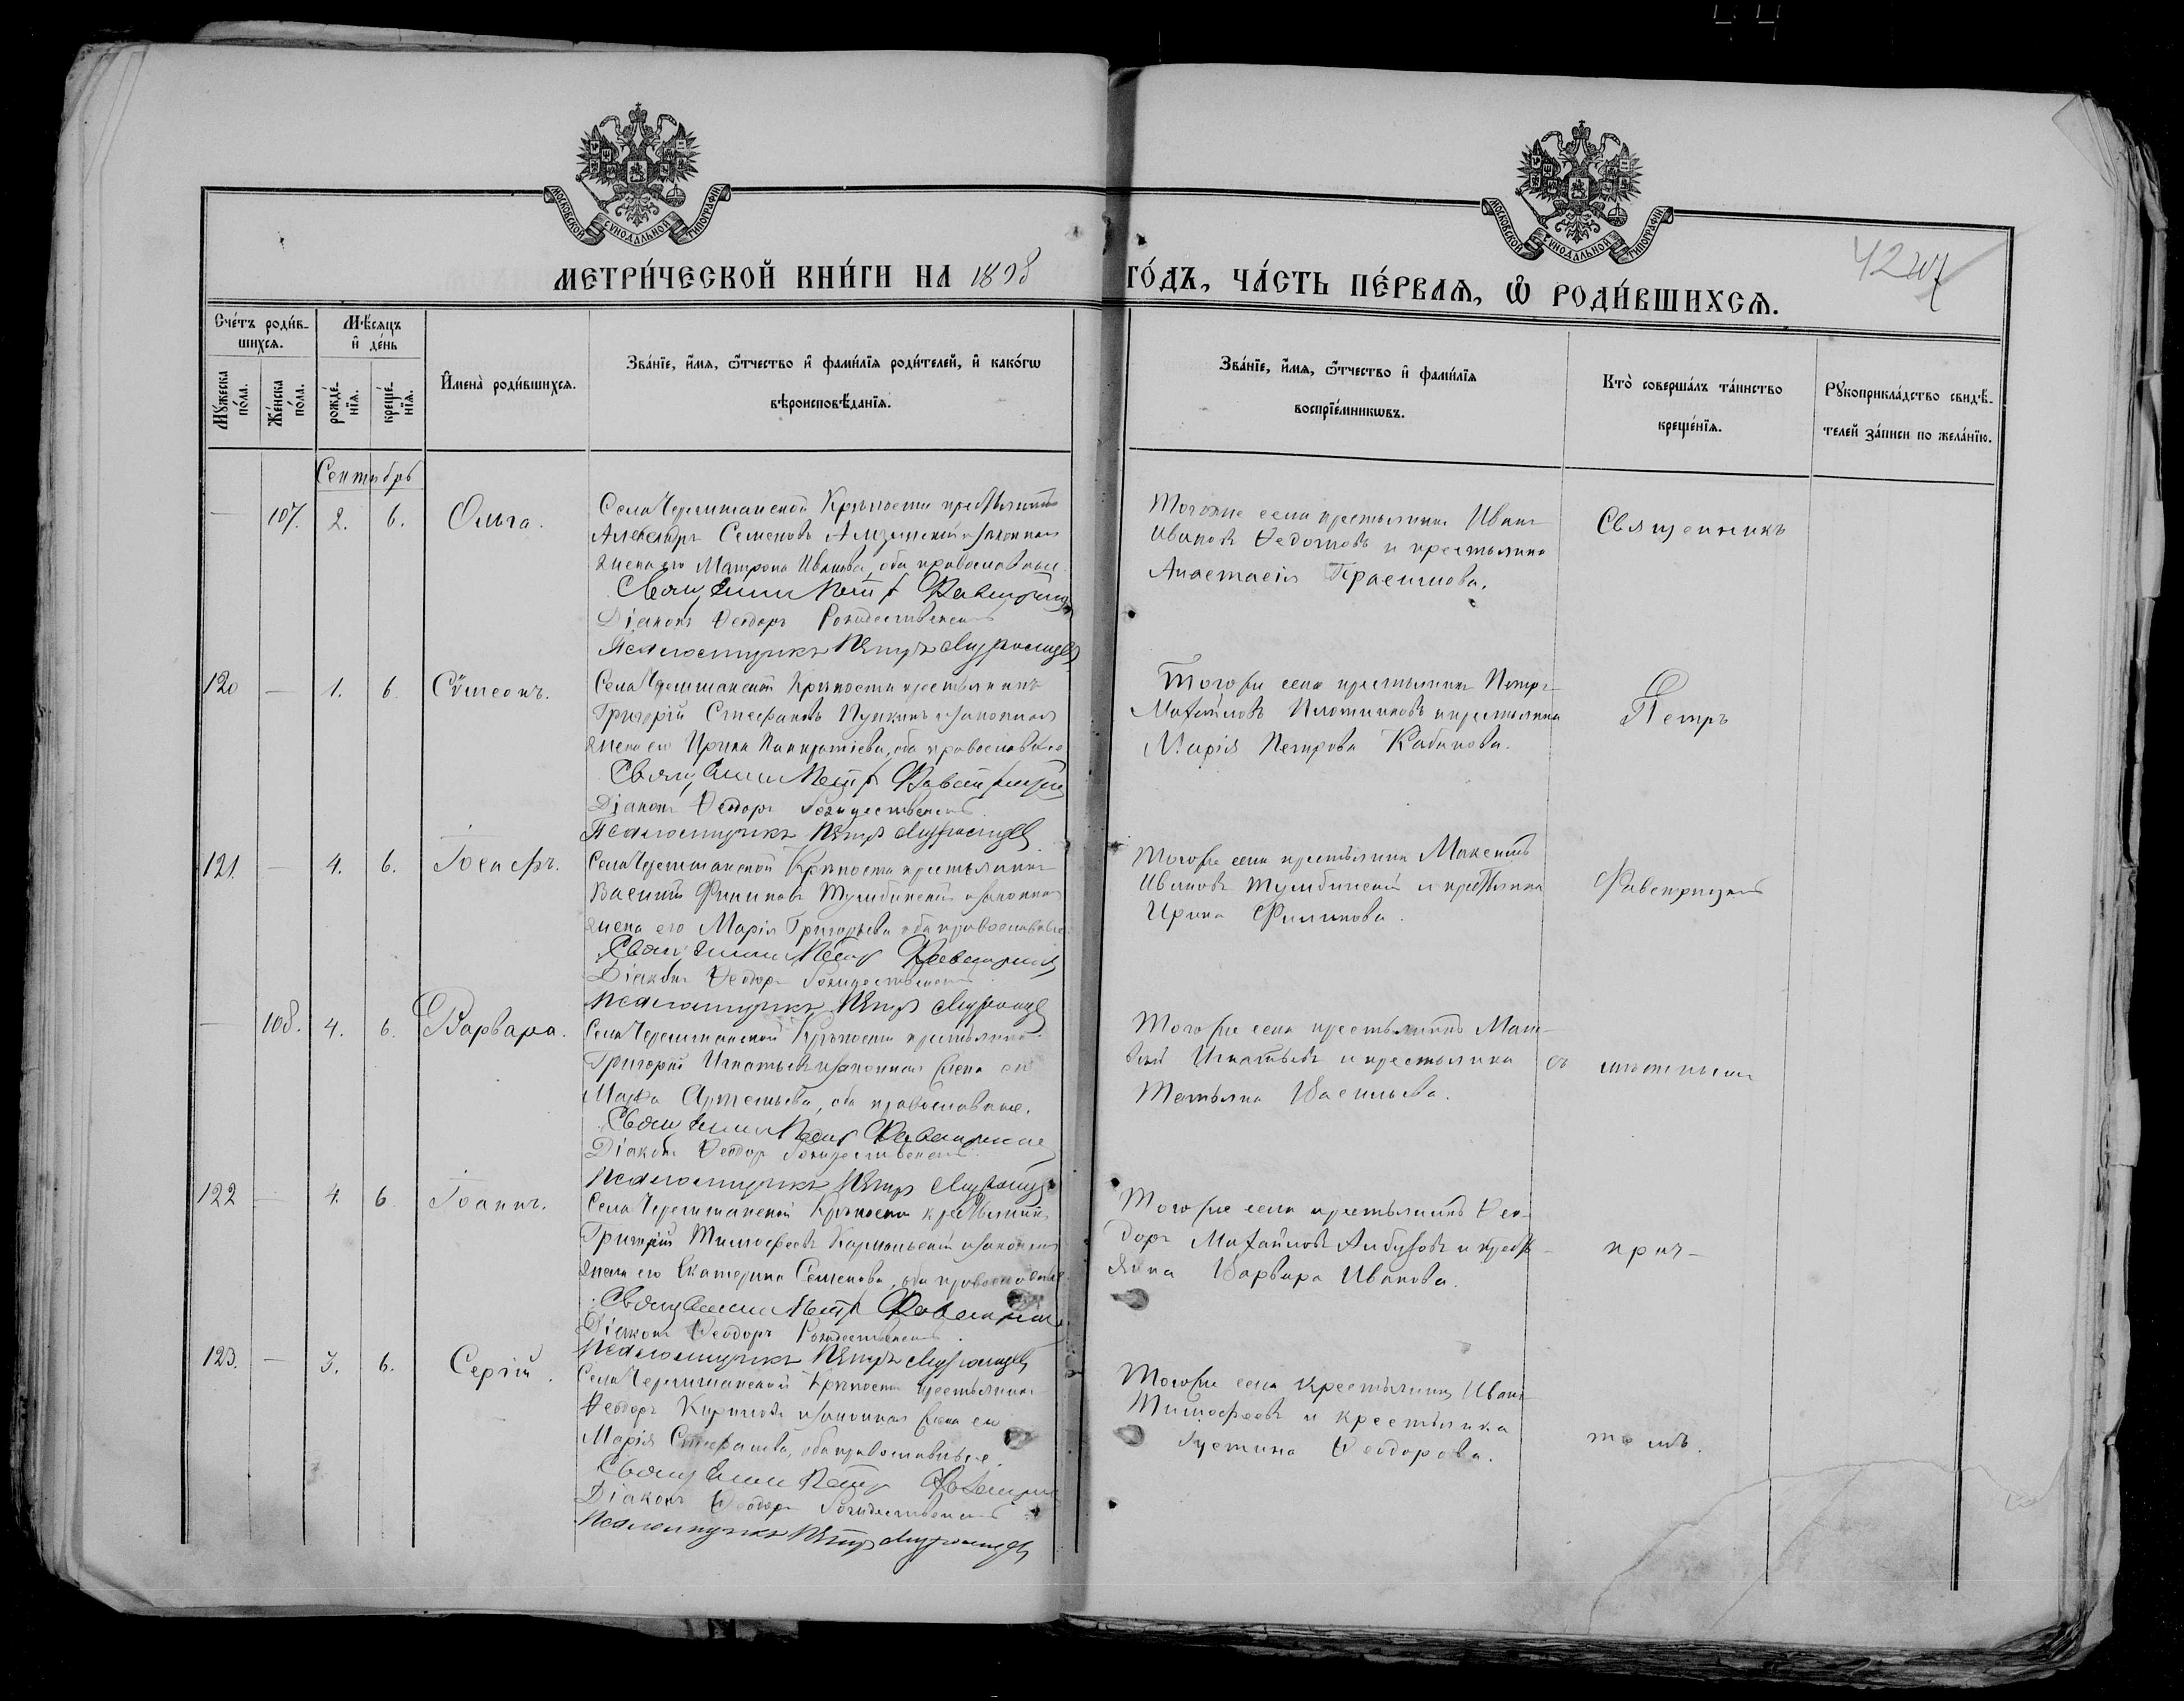 МЕТРИ́ЧЕСКОЙ КНИ́ГИ НА 1898 ГО́ДЪ, ЧА́СТЬ ПЕ́РВАЯ, Ѡ҆ РОДИ́ВШИХСЯ.
МОСКОВСКОЙ СѴНОДАЛЬНОЙ ТИПОГРАФІИ
МОСКОВСКОЙ СѴНОДАЛЬНОЙ ТИПОГРАФІИ
Сче́тъ роди́в-
шихся.
Мѣ́сяцъ
и҆ де́нь
Мꙋ́жеска по́ла.
Же́нска по́ла.
рожде́-нїя.
креще́-нїя.
И҆мена̀ роди́вшихся.
Зва́нїе, и҆́мя, ѻ҆́тчество и҆ фами́лїя роди́телей, и҆ како́гѡ
вѣроисповѣ́данїя.
Зва́нїе, и҆́мя, ѻ҆́тчество и҆ фами́лїя
воспрїе́мникѡвъ.
Кто̀ соверша́лъ та́инство
креще́нїя.
Рꙋкоприкла́дство свидѣ́-
телей за́писи по жела́нїю.
Сентябрь
— 107. 2. 6. Ольга.
Села Черемшанской Крѣпости крестьянинъ
Александръ Семеновъ и законная
жена его Матрона Иванова, оба православные
Священникъ Петръ
Діаконъ Ѳеодоръ Рождественскій
Псаломщикъ Петръ
Тогоже села крестьянинъ Иванъ
Ивановъ Ѳедотовъ и крестьянка
Анастасія Герасимова.
Священникъ
120 — 1. 6 Сѵмеонъ.
Села Черемшанской Крѣпости крестьянинъ
Григорій Стефановъ Пункинъ и законная
жена его Ирина Панкратіева, оба православные
Священникъ Петръ
Діаконъ Ѳеодоръ Рождественскій
Псаломщикъ Петръ
Того же села крестьянинъ Петръ
Михайловъ Плотниковъ и крестьянка
Марія Петрова Кабанова.
Петръ
121. — 4. 6. Іосифъ.
Села Черемшанской Крѣпости крестьянинъ
Василій Филиповъ Тумбинскій и законная
жена его Марія Григорьева оба православные
Священникъ Петръ
Діаконъ Ѳеодоръ Рождественскій
Псаломщикъ Петръ
Того же села крестьянинъ Максимъ
Ивановъ Тумбинскій и крестьянка
Ирина Филипова.
— 108. 4. 6. Варвара.
Села Черемшанской Крѣпости крестьянинъ
Григорій Игнатьевъ и законная жена его
Марѳа Артемьева, оба православные.
Священникъ Петръ
Діаконъ Ѳеодоръ Рождественскій
Псаломщикъ Петръ
Того же села крестьянинъ Мат-
вѣй Игнатьевъ и крестьянка
Татьяна Васильева.
съ мѣстнымъ
122 — 4. 6 Іоаннъ.
Села Черемшанской Крѣпости крестьянинъ
Григорій Тимофеевъ Кармальскій и законная
жена его Екатерина Семенова, оба православные
Священникъ Петръ
Діаконъ Ѳеодоръ Рождественскій
Псаломщикъ Петръ
Того же села крестьянинъ Ѳео-
доръ Михайловъ и кресть-
янка Варвара Иванова.
прич-
123. — 3. 6. Сергій.
Села Черемшанской Крѣпости крестьянинъ
Ѳеодоръ Кириловъ и законная жена его
Марія Стефанова, оба православные.
Священникъ Петръ
Діаконъ Ѳеодоръ Рождественскій
Псаломщикъ Петръ
Того же села крестьянинъ Иванъ
Тимофеевъ и крестьянка
Іустина Ѳеодорова.
томъ.